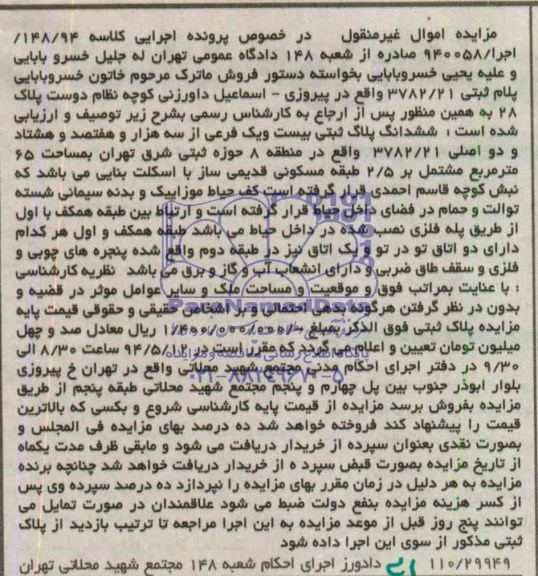 مزایده اموال غیرمنقول در خصوص پرونده اجرایی کلاسه ۱۴۸/۹۴/
اجرا/۹۴۰۰۵۸ صادره از شعبه ۱۴۸ دادگاه عمومی تهران له جلیل خسرو بابایی
و علیه یحیی خسروبابایی بخواسته دستور فروش ماترک مرحوم خاتون خسروبابایی
پلام ثبتی ۳۷۸۲/۲۱ واقع در پیروزی - اسماعیل داورزنی کوچه نظام دوست پلاک
۲۸ به همین منظور پس از ارجاع به کارشناس رسمی بشرح زیر توصیف و ارزیابی
شده است : ششدانگ پلاگ ثبتی بیست ویک فرعی از سه هزار و هفتصد و هشتاد
و دو اصلی ۳۷۸۲/۲۱ واقع در منطقه ۸ حوزه ثبتی شرق تهران بمساحت ۶۵
مترمربع مشتمل بر ۲/۵ طبقه مسکونی قدیمی ساز با اسکلت بنایی می باشد که
نبش کوچه قاسم احمدی قرار گرفته است کف حیاط موزاییک و بدنه سیمانی شسته
توالت و حمام در فضای داخل حیاط قرار گرفته است و ارتباط بین طبقه همکف با اول
از طریق پله فلزی نصب شده در داخل حیاط می باشد طبقه همکف و اول هر کدام
دارای دو اتاق تو در تو و یک اتاق نیز در طبقه دوم واقع شده پنجره های چوبی و
فلزی و سقف طاق ضربی و دارای انشعاب آب و گاز و برق می باشد نظریه کارشناسی
: با عنایت بمراتب فوق و موقعیت و مساحت ملک و سایر عوامل موثر در قضیه و
بدون در نظر گرفتن هرگونه بدهی احتمالی و بر اشخاص حقیقی و حقوقی قیمت پایه
مزایده پلاک ثبتی فوق الذکر بمبلغ ۱/۴۰۰/۰۰۰/۰۰۰/- ریال معادل صد و چهل
میلیون تومان تعیین و اعلام می گردد که مقرر است در ۹۴/۵/۱۲ ساعت ۸/۳۰ الی
۹/۳۰ در دفتر اجرای احکام مدنی مجتمع شهید محلاتی واقع در تهران خ پیروزی
بلوار ابوذر جنوب بین پل چهارم و پنجم مجتمع شهید محلاتی طبقه پنجم از طریق
مزایده بفروش برسد مزایده از قیمت پایه کارشناسی شروع و بکسی که بالاترین
قیمت را پیشنهاد کند فروخته خواهد شد ده درصد بهای مزایده فی المجلس و
بصورت نقدی بعنوان سپرده از خریدار دریافت می شود و مابقی ظرف مدت یکماه
از تاریخ مزایده بصورت قبض سپرد ه از خریدار دریافت خواهد شد چنانچه برنده
مزایده به هر دلیل در زمان مقرر بهای مزایده را نپردازد ده درصد سپرده وی پس
از کسر هزینه مزایده بنفع دولت ضبط می شود علاقمندان در صورت تمایل می
توانند پنج روز قبل از موعد مزایده به این اجرا مراجعه تا ترتیب بازدید از پلاک
ثبتی مذکور از سوی این اجرا داده شود
۱۱۰/۲۹۹۴۹ دادورز اجرای احکام شعبه ۱۴۸ مجتمع شهید محلاتی تهران
ParsNamadData
پایگاه اطلاع رسانی مناقصه و مزایده
۰۲۱-۸۸۳۴۹۶۷۰-۵